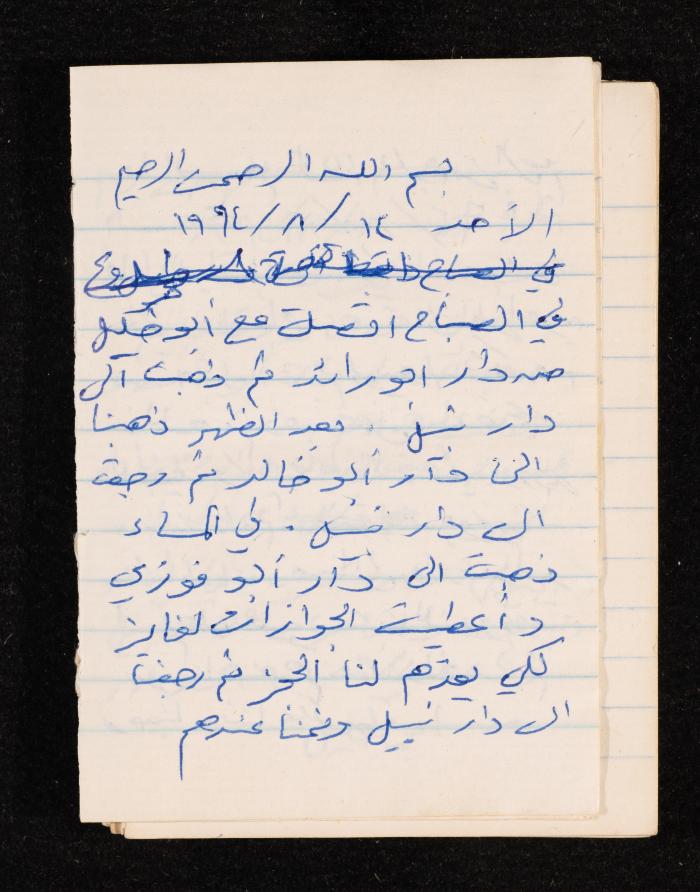 بسم الله الرحمن الرحيم
الأحد ١٤/٨/١٩٩٤
في الصباح
في الصباح اتصلت مع أبو خليل
من دار ابو رائد ثم ذهبت الى
دار نبيل. بعد الظهر ذهبنا
الى دار أبو خالد ثم رجعت
الى دار نبيل. في المساء
ذهبت الى دار أبو فوزي
وأعطيت الجوازات لفايز
لكي يقدم لنا الحجز ثم رجعنا
الى دار نبيل ونمنا عندهم